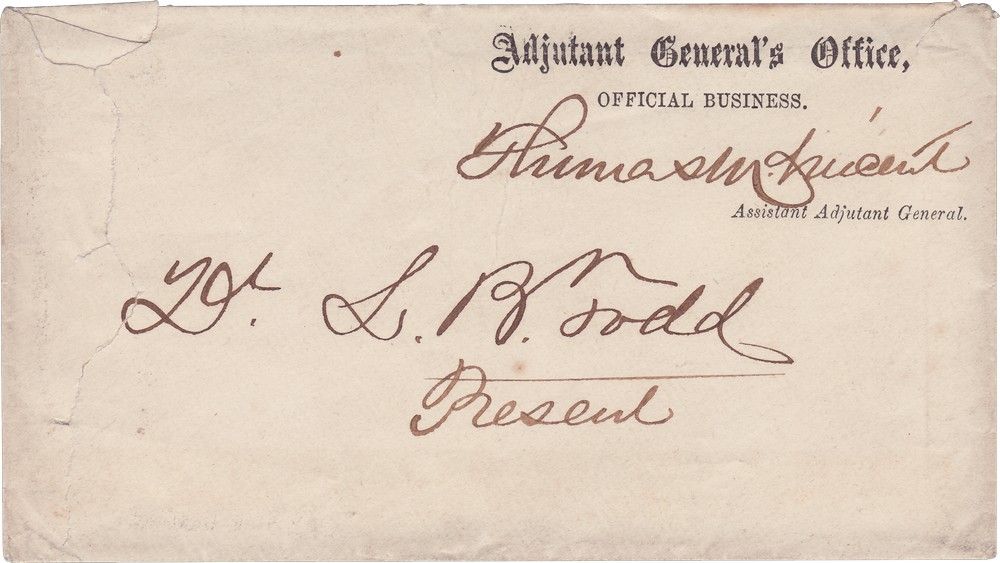 Adjutant General's Office,
OFFICIAL BUSINESS.
Thomas M. Vincent
Assistant Adjutant General.
Dr. L. B. Todd
Present